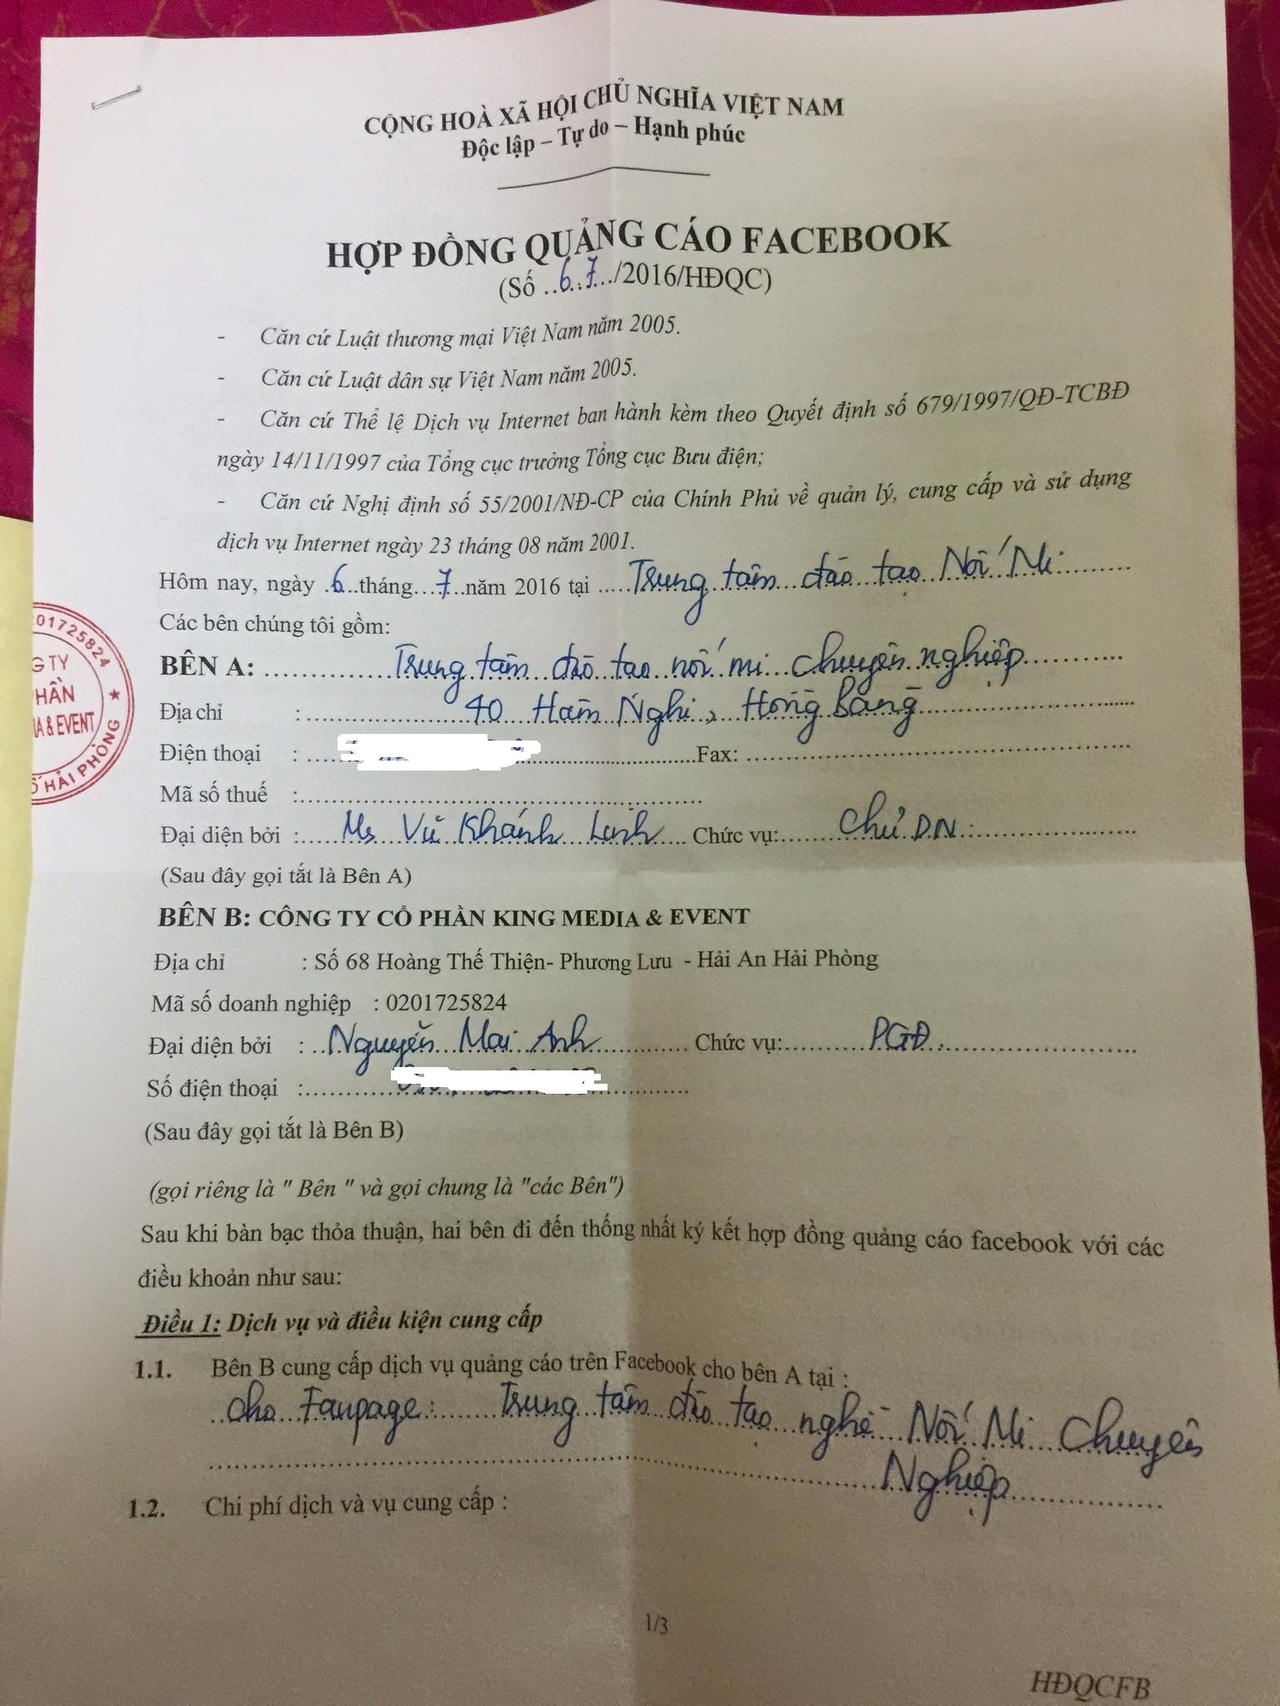 CỘNG HOÀ XÃ HỘI CHỦ NGHĨA VIỆT NAM
Độc lập – Tự do – Hạnh phúc
HỢP ĐỒNG QUẢNG CÁO FACEBOOK
(Số ..6..7.../2016/HĐQC)
- Căn cứ Luật thương mại Việt Nam năm 2005.
- Căn cứ Luật dân sự Việt Nam năm 2005.
- Căn cứ Thể lệ Dịch vụ Internet ban hành kèm theo Quyết định số 679/1997/QĐ-TCBĐ
ngày 14/11/1997 của Tổng cục trưởng Tổng cục Bưu điện;
- Căn cứ Nghị định số 55/2001/NĐ-CP của Chính Phủ về quản lý, cung cấp và sử dụng
dịch vụ Internet ngày 23 tháng 08 năm 2001.
Hôm nay, ngày 6 tháng 7 năm 2016 tại Trung tâm đào tạo Nối Mi
Các bên chúng tôi gồm:
BÊN A: Trung tâm đào tạo nối mi chuyên nghiệp
Địa chỉ : 40 Hàm Nghi, Hồng Bàng
Điện thoại : Fax:
Mã số thuế :
Đại diện bởi : Ms Vũ Khánh Linh Chức vụ: Chủ DN
(Sau đây gọi tắt là Bên A)
BÊN B: CÔNG TY CỔ PHẦN KING MEDIA & EVENT
Địa chỉ : Số 68 Hoàng Thế Thiện- Phương Lưu - Hải An Hải Phòng
Mã số doanh nghiệp : 0201725824
Đại diện bởi : Nguyễn Mai Anh Chức vụ: PGĐ.
Số điện thoại :
(Sau đây gọi tắt là Bên B)
(gọi riêng là " Bên " và gọi chung là "các Bên")
Sau khi bàn bạc thỏa thuận, hai bên đi đến thống nhất ký kết hợp đồng quảng cáo facebook với các
điều khoản như sau:
Điều 1: Dịch vụ và điều kiện cung cấp
1.1. Bên B cung cấp dịch vụ quảng cáo trên Facebook cho bên A tại :
cho Fanpage: Trung tâm đào tạo nghề Nối Mi Chuyên
Nghiệp
1.2. Chi phí dịch và vụ cung cấp :
1/3
HĐQCFB
01725824
G TY
HẦN
IA & EVENT
HẢI PHÒNG